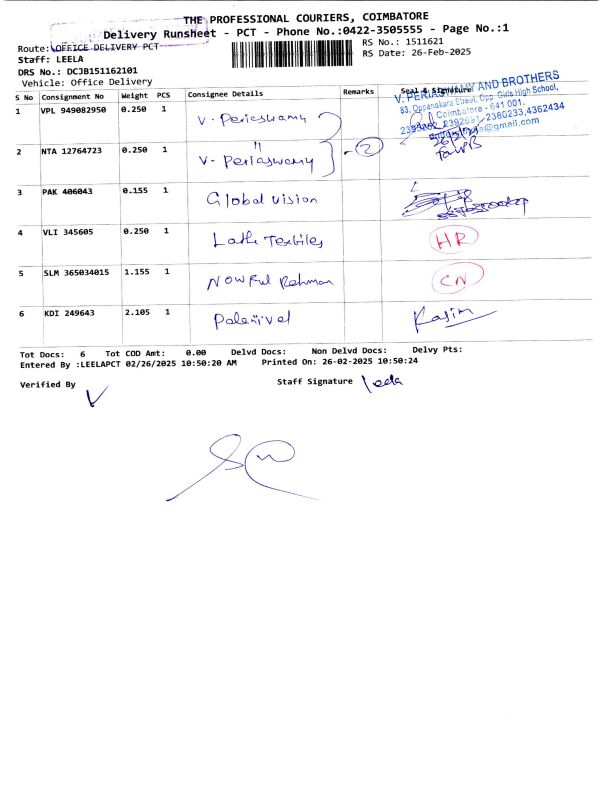 THE PROFESSIONAL COURIERS, COIMBATORE
Delivery Runsheet - PCT - Phone No.:0422-3505555 - Page No.:1
Route: OFFICE DELIVERY PCT
RS No.: 1511621
Staff: LEELA
RS Date: 26-Feb-2025
DRS No.: DCJB151162101
Vehicle: Office Delivery
S No Consignment No Weight PCS Consignee Details Remarks Seal & Signature
V. PERIASWAMY AND BROTHERS
83, Oppanakara Street, Opp. Girls High School,
Coimbatore - 641 001.
2380233,4362434
@gmail.com
1 VPL 949082950 0.250 1 V. Periaswamy
2 NTA 12764723 0.250 1 " V. Periaswamy - 2
3 PAK 406043 0.155 1 Global vision
4 VLI 345605 0.250 1 Lathe Textiles HR
5 SLM 365034015 1.155 1 Nowful Rehman CN
6 KDI 249643 2.105 1 Palanivel Kasim
Tot Docs: 6 Tot COD Amt: 0.00 Delvd Docs: Non Delvd Docs: Delvy Pts:
Entered By :LEELAPCT 02/26/2025 10:50:20 AM Printed On: 26-02-2025 10:50:24
Verified By
Staff Signature leela